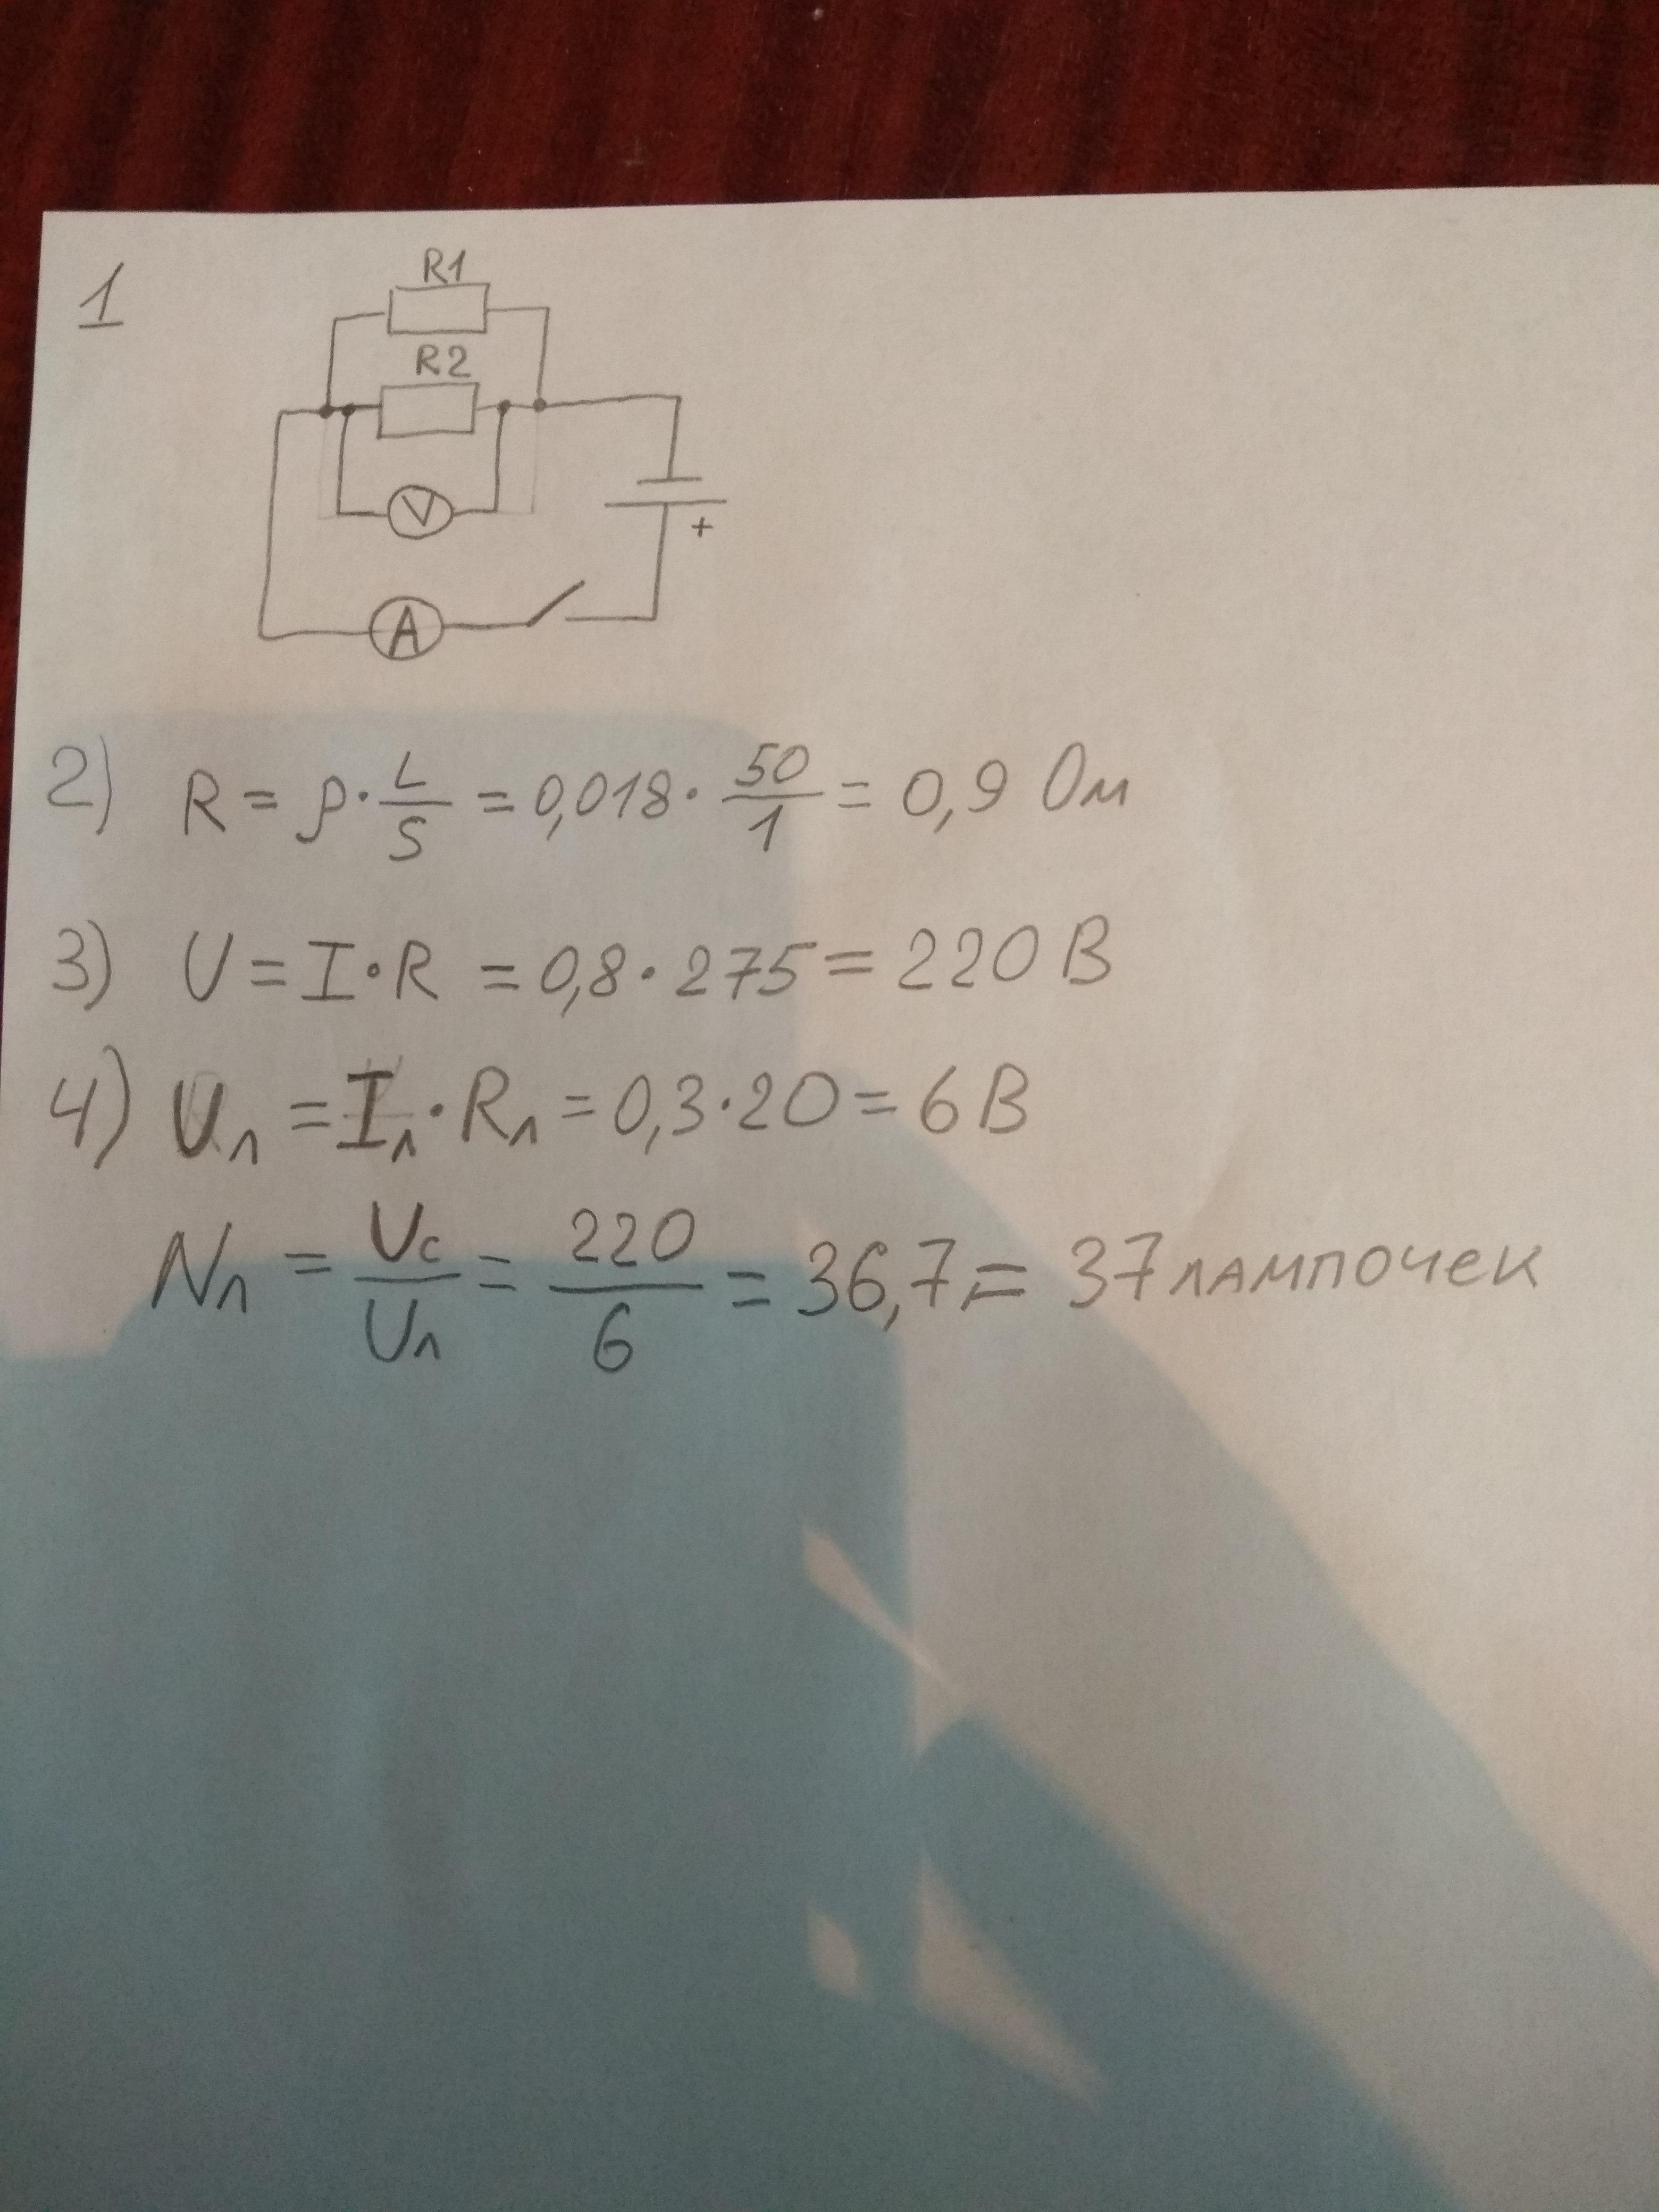 1
R1
R2
V
+
A
2) R = ρ · L/S = 0,018 · 50/1 = 0,9 Ом
3) U = I · R = 0,8 · 275 = 220 В
4) Uл = Iл · Rл = 0,3 · 20 = 6 В
Nл = Uc/Uл = 220/6 = 36,7 = 37 лампочек